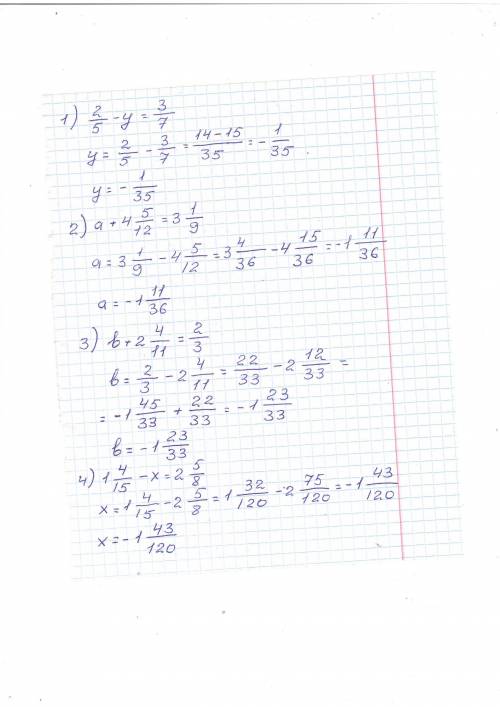 1) 2/5 - y = 3/7
y = 2/5 - 3/7 = (14-15)/35 = - 1/35
y = - 1/35
2) a + 4 5/12 = 3 1/9
a = 3 1/9 - 4 5/12 = 3 4/36 - 4 15/36 = -1 11/36
a = -1 11/36
3) в + 2 4/11 = 2/3
в = 2/3 - 2 4/11 = 22/33 - 2 12/33 =
= -1 45/33 + 22/33 = -1 23/33
в = -1 23/33
4) 1 4/15 - x = 2 5/8
x = 1 4/15 - 2 5/8 = 1 32/120 - 2 75/120 = -1 43/120
x = -1 43/120